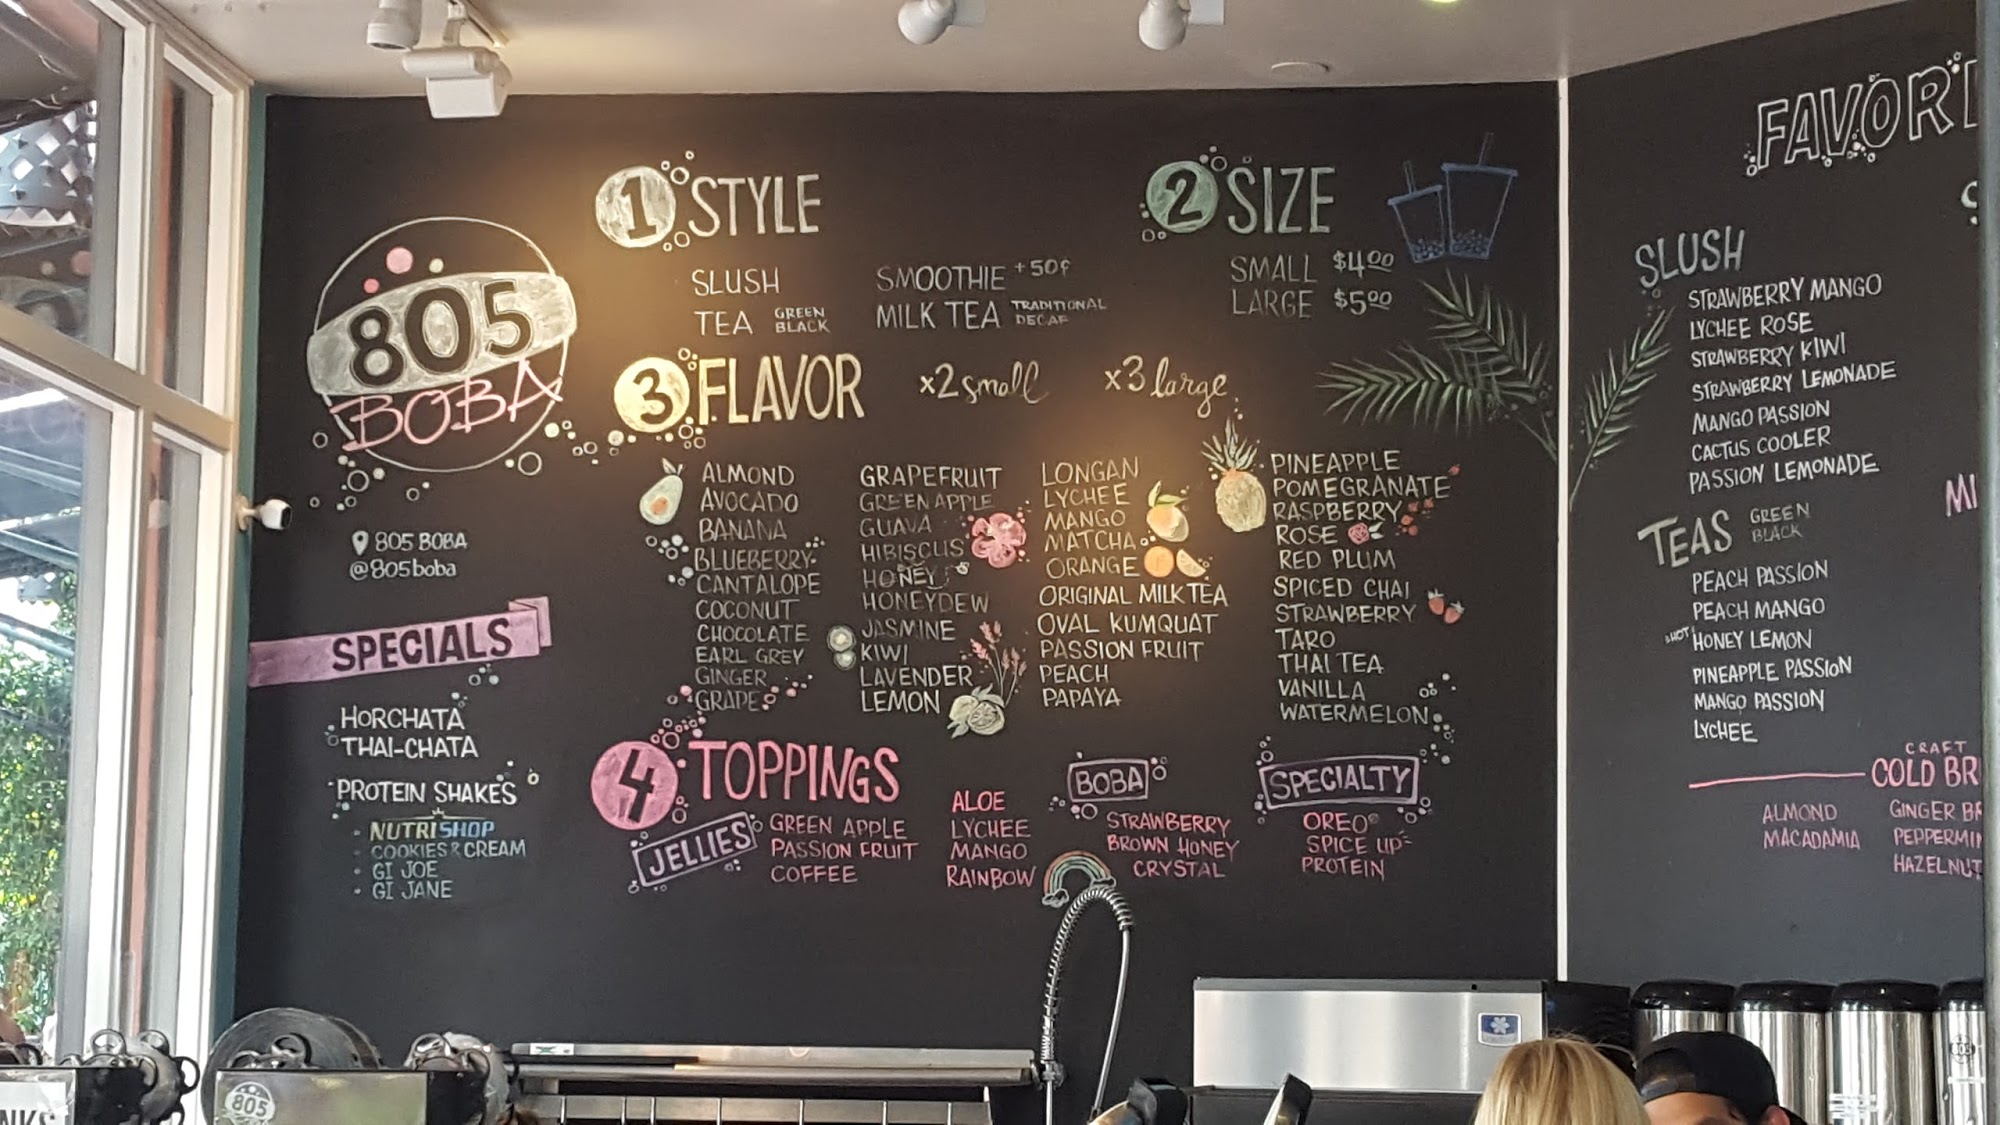 805
BOBA
805 BOBA
@805boba
SPECIALS
HORCHATA
THAI-CHATA
PROTEIN SHAKES
NUTRISHOP
COOKIES & CREAM
GI JOE
GI JANE
1 STYLE
SLUSH
TEA GREEN BLACK
SMOOTHIE +50¢
MILK TEA TRADITIONAL DECAF
2 SIZE
SMALL $4.00
LARGE $5.00
3 FLAVOR x2 small x3 large
ALMOND
AVOCADO
BANANA
BLUEBERRY
CANTALOPE
COCONUT
CHOCOLATE
EARL GREY
GINGER
GRAPE
GRAPEFRUIT
GREEN APPLE
GUAVA
HIBISCUS
HONEY
HONEYDEW
JASMINE
KIWI
LAVENDER
LEMON
LONGAN
LYCHEE
MANGO
MATCHA
ORANGE
ORIGINAL MILK TEA
OVAL KUMQUAT
PASSION FRUIT
PEACH
PAPAYA
PINEAPPLE
POMEGRANATE
RASPBERRY
ROSE
RED PLUM
SPICED CHAI
STRAWBERRY
TARO
THAI TEA
VANILLA
WATERMELON
4 TOPPINGS
JELLIES
GREEN APPLE
PASSION FRUIT
COFFEE
ALOE
LYCHEE
MANGO
RAINBOW
BOBA
STRAWBERRY
BROWN HONEY
CRYSTAL
SPECIALTY
OREO®
SPICE UP
PROTEIN
FAVORI
SLUSH
STRAWBERRY MANGO
LYCHEE ROSE
STRAWBERRY KIWI
STRAWBERRY LEMONADE
MANGO PASSION
CACTUS COOLER
PASSION LEMONADE
MI
TEAS GREEN BLACK
PEACH PASSION
PEACH MANGO
*HOT HONEY LEMON
PINEAPPLE PASSION
MANGO PASSION
LYCHEE
CRAFT
COLD BR
ALMOND
MACADAMIA
GINGER BR
PEPPERMIN
HAZELNUT
805
805
NKS